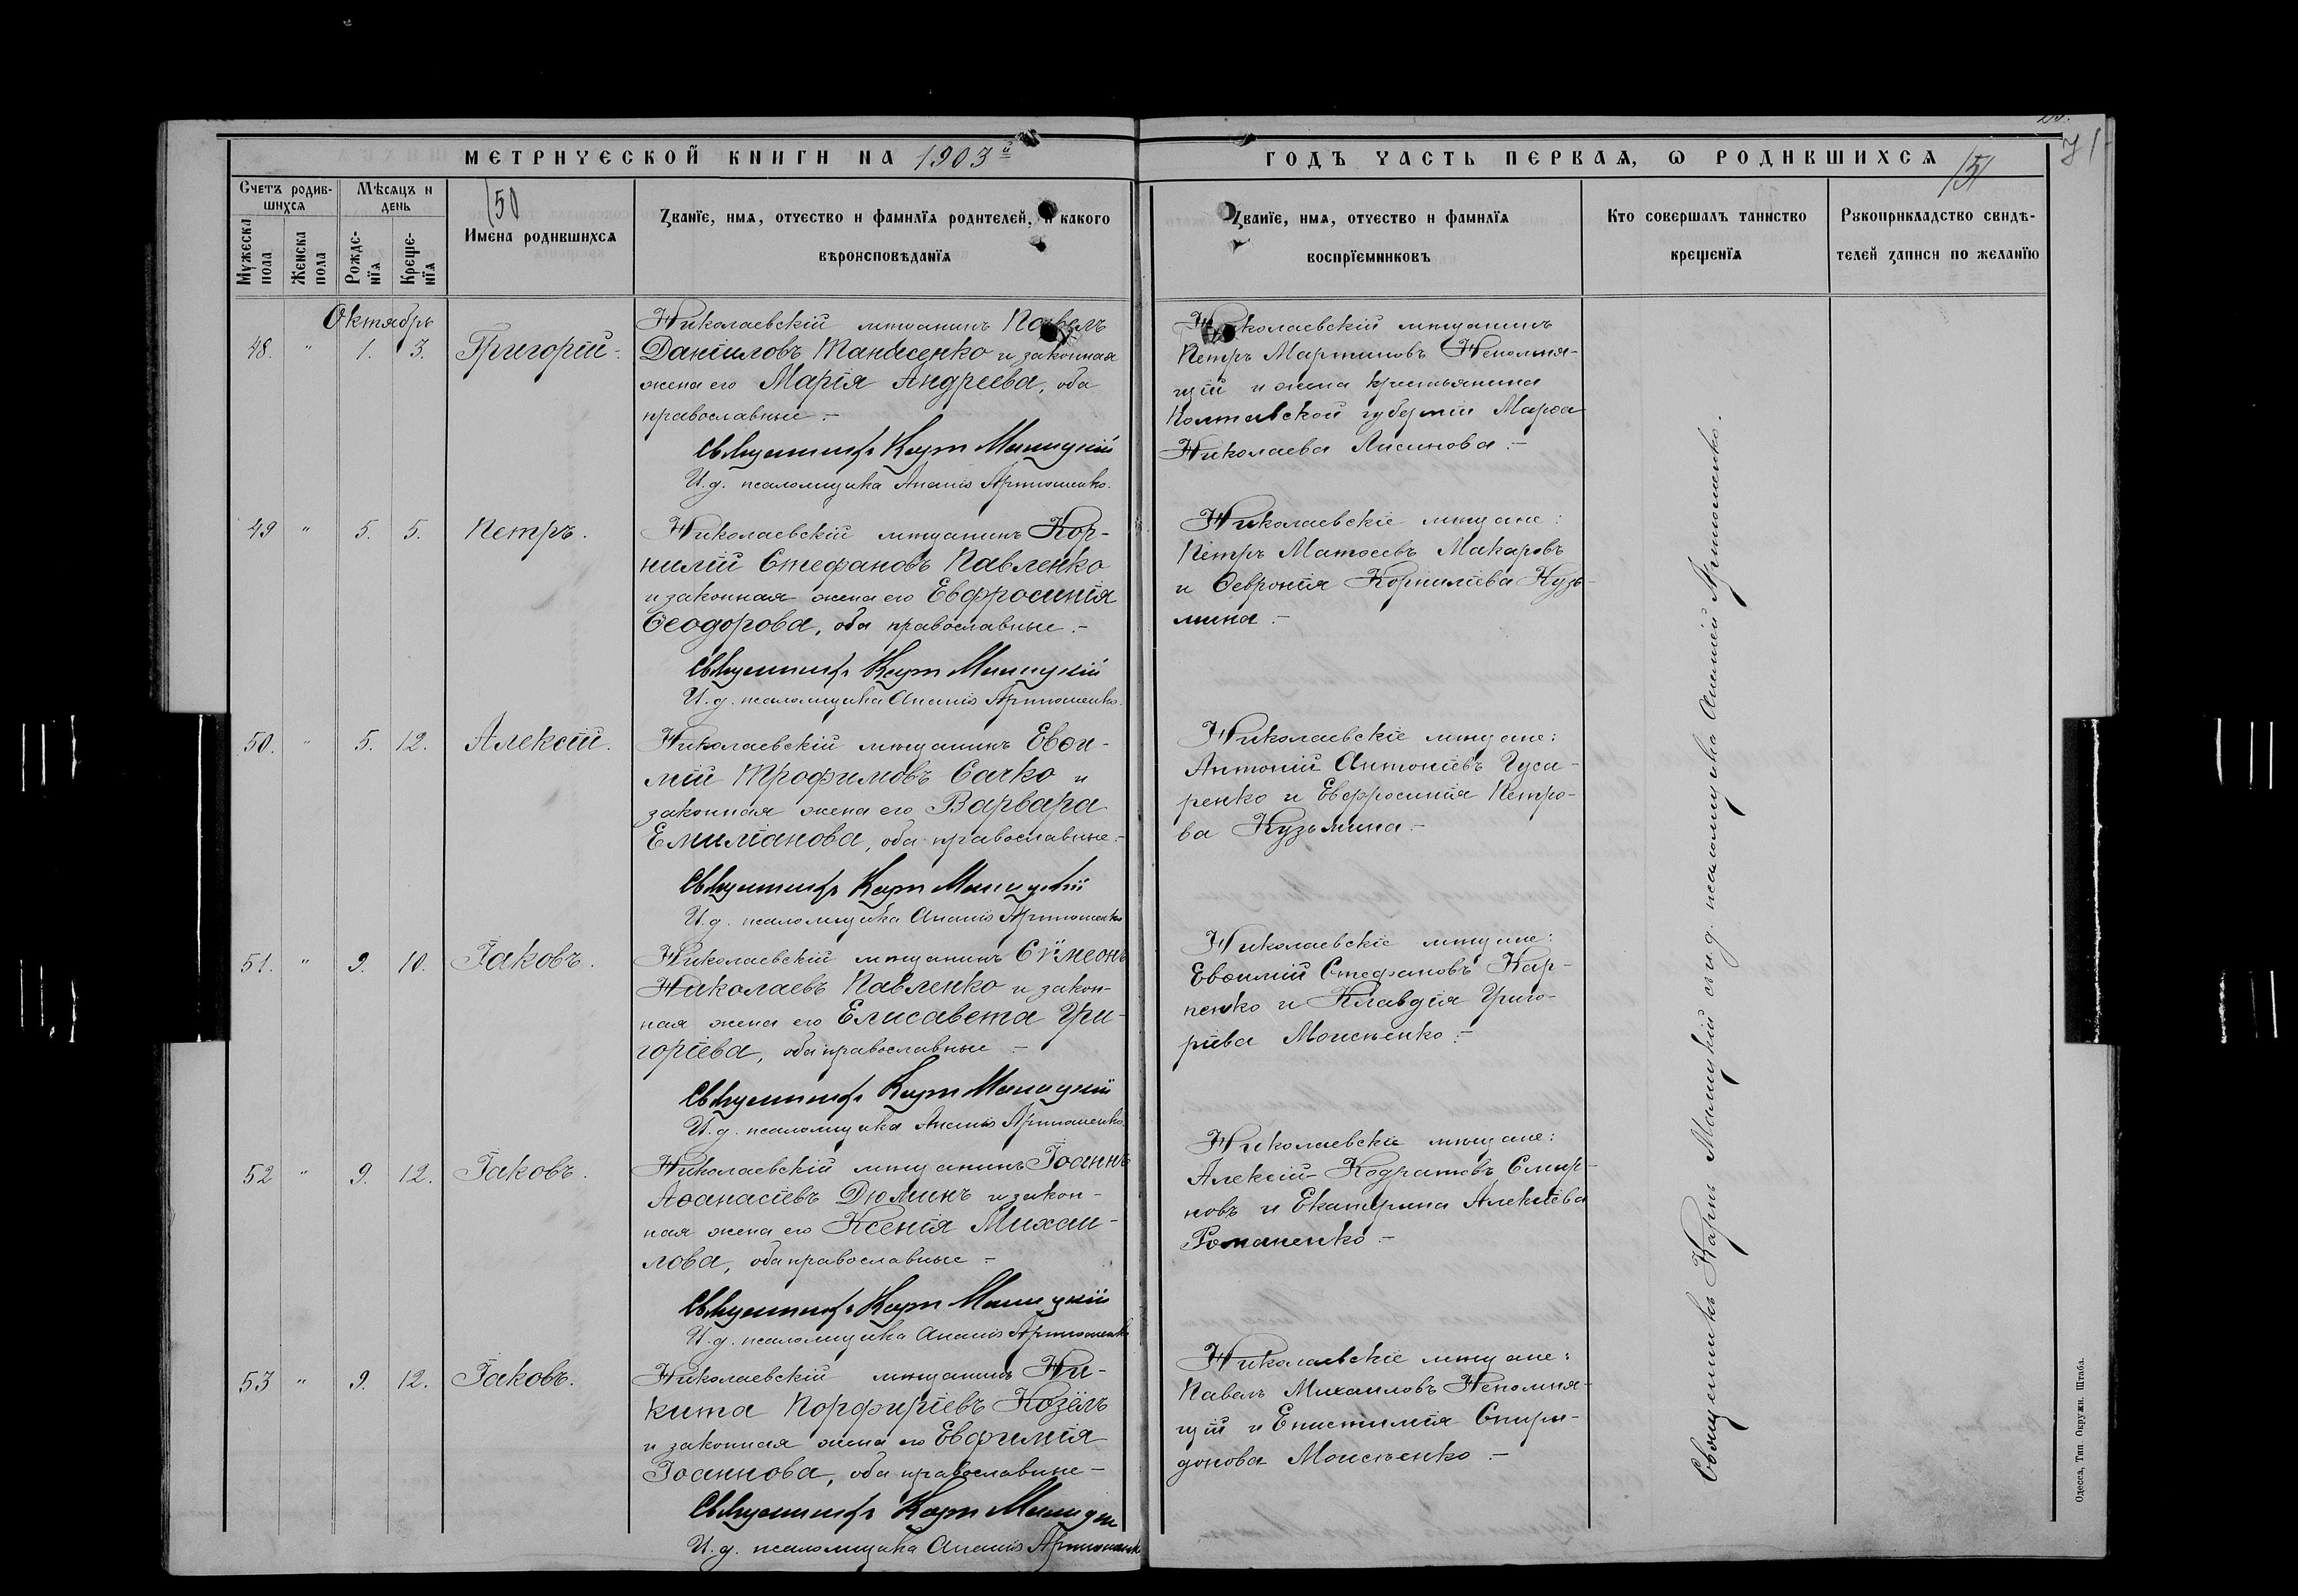 МЕТРИЧЕСКОЙ КНИГИ НА 1903й
ГОДЪ ЧАСТЬ ПЕРВАЯ, Ѡ РОДИВШИХСЯ
150
151
71
Счетъ родив-
шихся
Мѣсяцъ и
день
Мужеска
пола
Женска
пола
Рожде-
нїя
Креще-
нїя
Имена родившихся
Званїе, имя, отчество и фамилїя родителей, и какого
вѣроисповѣданїя
Званїе, имя, отчество и фамилїя
воспрїемниковъ
Кто совершалъ таинство
крещенїя
Рукоприкладство свидѣ-
телей записи по желанїю
Октябрь
48. " 1. 3. Григорій.
Николаевскій мѣщанинъ Павелъ
Даніиловъ Танасенко и законная
жена его Марія Андреева, оба
православные.-
Священникъ Карпъ Малицкій
И. д. псаломщика Ананія Артюшенко.
Николаевскій мѣщанинъ
Петръ Мартиновъ Непомня-
щій и жена крестьянина
Полтавской губерніи Марѳа
Николаева Лисинова.-
49 " 5. 5. Петръ.
Николаевскій мѣщанинъ Кор-
нилій Стефановъ Павленко
и законная жена его Евфросинія
Ѳеодорова, оба православные.-
Священникъ Карпъ Малицкій
И. д. псаломщика Ананія Артюшенко.
Николаевскіе мѣщане:
Петръ Матѳеевъ Макаровъ
и Ѳевронія Корниліева Кузь-
мина.-
50. " 5. 12. Алексій.
Николаевскій мѣщанинъ Евѳи-
мій Трофимовъ Сачко и
законная жена его Варвара
Емиліанова, оба православные.-
Священникъ Карпъ Малицкій
И. д. псаломщика Ананія Артюшенко
Николаевскіе мѣщане:
Антоній Антоніевъ Гуса-
ренко и Евфросинія Петро-
ва Кузьмина.-
51. " 9. 10. Іаковъ.
Николаевскій мѣщанинъ Сѵмеонъ
Николаевъ Павленко и закон-
ная жена его Елисавета Гри-
горіева, оба православные.-
Священникъ Карпъ Малицкій
И. д. псаломщика Ананія Артюшенко.
Николаевскіе мѣщане:
Евѳимій Стефановъ Кар-
пенко и Клавдія Григо-
ріева Моисѣенко.-
52 " 9. 12. Іаковъ.
Николаевскій мѣщанинъ Іоаннъ
Аѳанасіевъ Дюминъ и закон-
ная жена его Ксенія Михаи-
лова, оба православные-
Священникъ Карпъ Малицкій
И. д. псаломщика Ананія Артюшенко
Николаевскіе мѣщане:
Алексій Кодратовъ Смир-
новъ и Екатерина Алексіева
Романенко.-
53 " 9. 12. Іаковъ.
Николаевскій мѣщанинъ Ни-
кита Порфиріевъ Козёлъ
и законная жена его Евфимія
Іоаннова, оба православные-
Священникъ Карпъ Малицкій
И. д. псаломщика Ананія Артюшенко
Николаевскіе мѣщане:
Павелъ Михаиловъ Непомня-
щій и Епистимія Спири-
донова Моисѣенко.-
Священникъ Карпъ Малицкій съ и. д. псаломщика Ананіей Артюшенко.
Одесса, Тип. Окружн. Штаба.